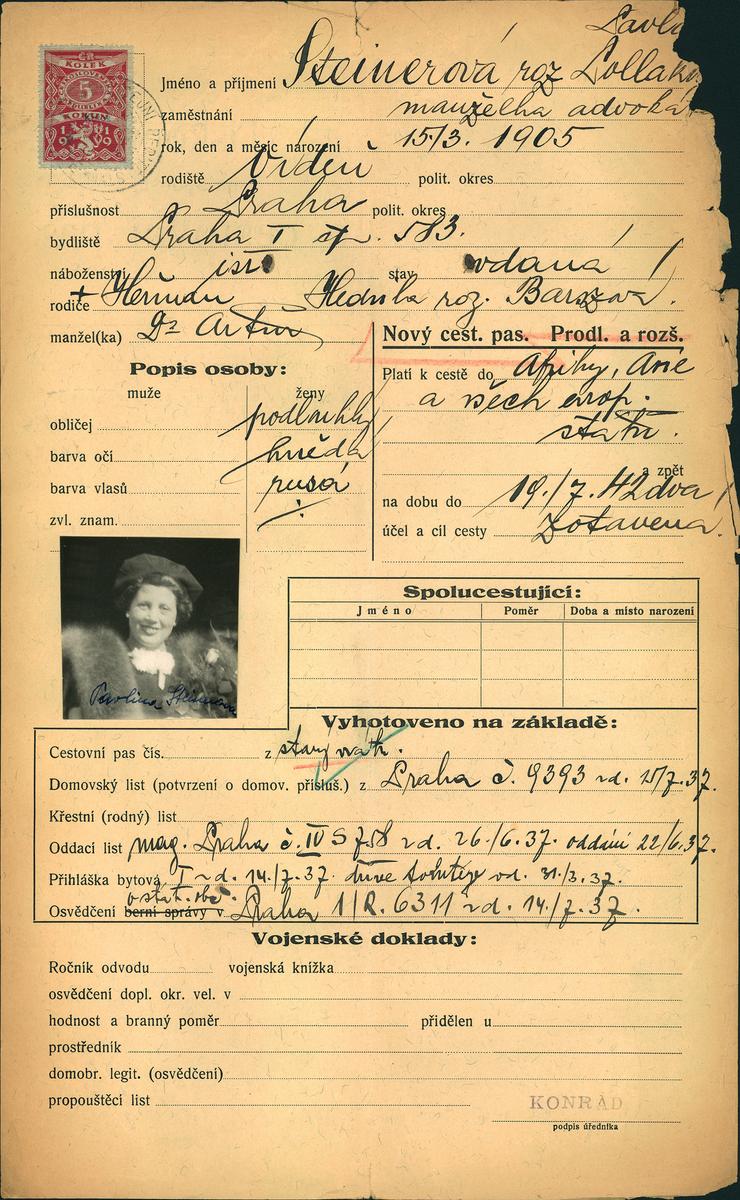 ČR
KOLEK
5
KOLKUM
1919
Pavl
Jméno a příjmení Steinerová roz Pollak
zaměstnání manželka advoká
rok, den a měsíc narození 15/3. 1905
rodiště Vídeň polit. okres
příslušnost Praha polit. okres
bydliště Praha I čp. 583.
náboženství isr. stav vdaná
rodiče + Heřman Hedvika roz.
manžel(ka) Dr Artur
Nový cest. pas. Prodl. a rozš.
Popis osoby:
muže ženy
obličej podlouhlý
barva očí hnědá
barva vlasů rusá
zvl. znam. ÷
Platí k cestě do Afriky, Asie
a všech evrop.
států.
a zpět
na dobu do 19./7. 42 dva
účel a cíl cesty Zotavena
Pavlina Steinerova
Spolucestující:
Jméno Poměr Doba a místo narození
Vyhotoveno na základě:
Cestovní pas čís. z starý vrát.
Domovský list (potvrzení o domov. přísluš.) z Praha č. 9393 zd. 15/7.37.
Křestní (rodný) list
Oddací list mag. Praha č. IV S 758 zd. 26./6.37. oddáni 22/6.37.
Přihláška bytová I zd. 14./7.37. dříve od. 31/3.37.
o stát. obč.
Osvědčení berní správy v Praha 1/R. 6311 zd. 14./7.37.
Vojenské doklady:
Ročník odvodu vojenská knížka
osvědčení dopl. okr. vel. v
hodnost a branný poměr přidělen u
prostředník
domobr. legit. (osvědčení)
propouštěcí list
KONRÁD
podpis úředníka